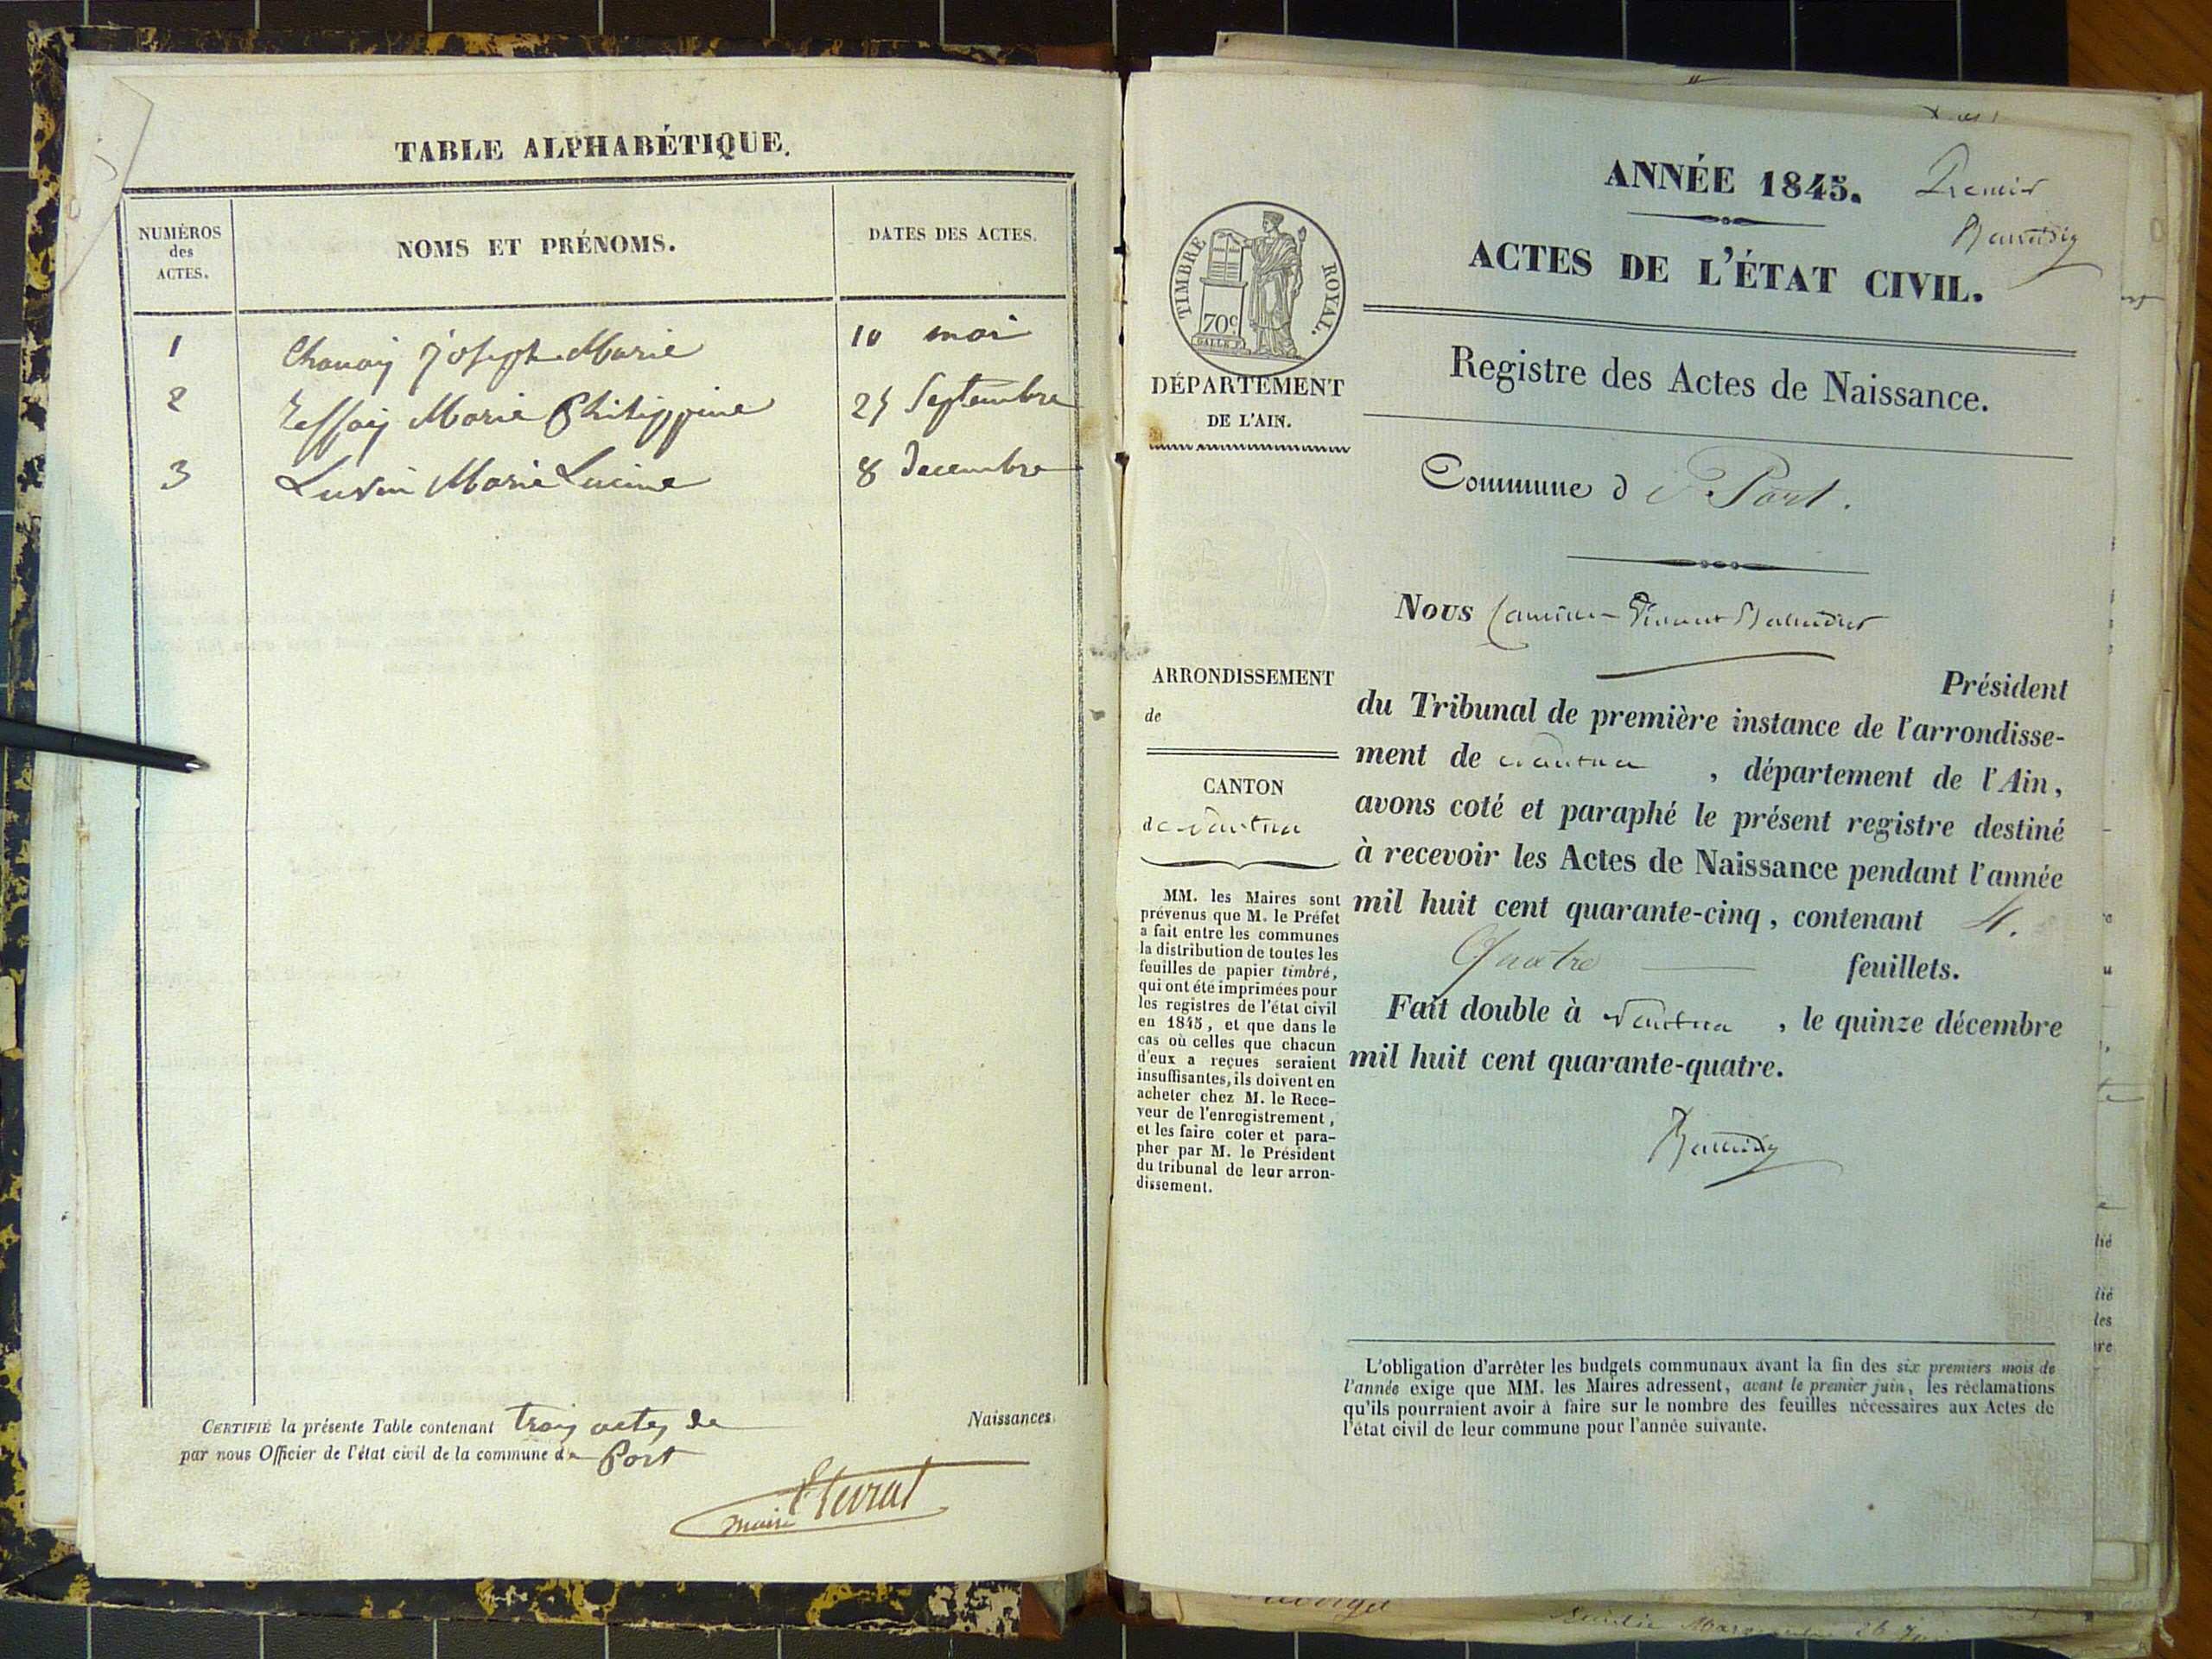 TABLE ALPHABÉTIQUE.
NUMÉROS
des
ACTES.
NOMS ET PRÉNOMS.
DATES DES ACTES.
1 Joseph Marie 10 mai
2 Marie Philippine 25 Septembre
3 Marie 8 Decembre
CERTIFIÉ la présente Table contenant trois actes de Naissances
par nous Officier de l'état civil de la commune de Port
maire
ANNÉE 1845.
Premier
ACTES DE L'ÉTAT CIVIL.
TIMBRE ROYAL.
70c
DÉPARTEMENT
DE L'AIN.
Registre des Actes de Naissance.
Commune de Port.
Nous
Président
ARRONDISSEMENT
de
CANTON
de Nantua
MM. les Maires sont
prévenus que M. le Préfet
a fait entre les communes
la distribution de toutes les
feuilles de papier timbré,
qui ont été imprimées pour
les registres de l'état civil
en 1845, et que dans le
cas où celles que chacun
d'eux a reçues seraient
insuffisantes, ils doivent en
acheter chez M. le Rece-
veur de l'enregistrement,
et les faire coter et para-
pher par M. le Président
du tribunal de leur arron-
dissement.
du Tribunal de première instance de l'arrondisse-
ment de Nantua, département de l'Ain,
avons coté et paraphé le présent registre destiné
à recevoir les Actes de Naissance pendant l'année
mil huit cent quarante-cinq, contenant 4.
Quatre feuillets.
Fait double à Nantua, le quinze décembre
mil huit cent quarante-quatre.
L'obligation d'arrêter les budgets communaux avant la fin des six premiers mois de
l'année exige que MM. les Maires adressent, avant le premier juin, les réclamations
qu'ils pourraient avoir à faire sur le nombre des feuilles nécessaires aux Actes de
l'état civil de leur commune pour l'année suivante.